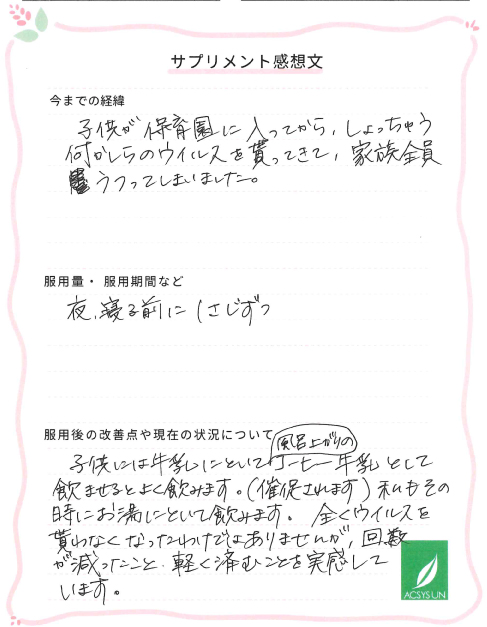 サプリメント感想文
今までの経緯
子供が保育園に入ってから、しょっちゅう
何かしらのウイルスを貰ってきて、家族全員
うつってしまいました。
服用量・ 服用期間など
夜、寝る前に1さじずつ
服用後の改善点や現在の状況について
風呂上がりの
子供には牛乳にといてコーヒー牛乳として
飲ませるとよく飲みます。(催促されます)私もその
時にお湯にといて飲みます。 全くウイルスを
貰わなくなったわけではありませんが、回数
が減ったこと、軽く済むことを実感して
います。
ACSYS LIN